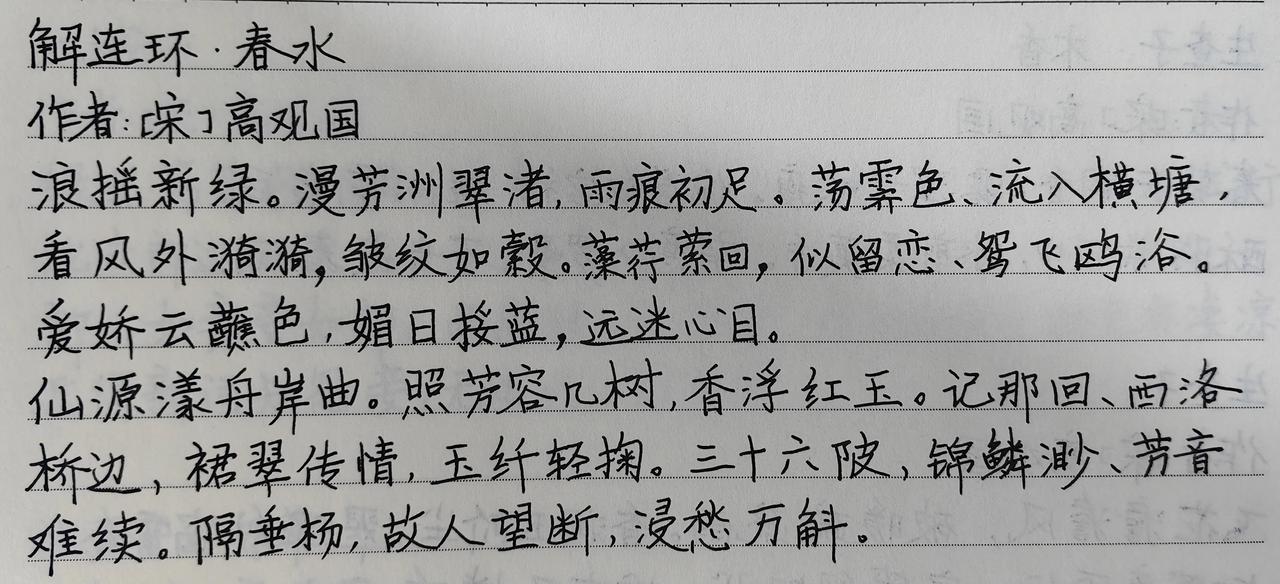 解连环·春水
作者:[宋]高观国
浪摇新绿。漫芳洲翠渚,雨痕初足。荡霁色、流入横塘,
看风外漪漪,皱纹如縠。藻荇萦回,似留恋、鸳飞鸥浴。
爱娇云蘸色,媚日挼蓝,远迷心目。
仙源漾舟岸曲。照芳容几树,香浮红玉。记那回、西洛
桥边,裙翠传情,玉纤轻掬。三十六陂,锦鳞渺、芳音
难续。隔垂杨,故人望断,浸愁万斛。